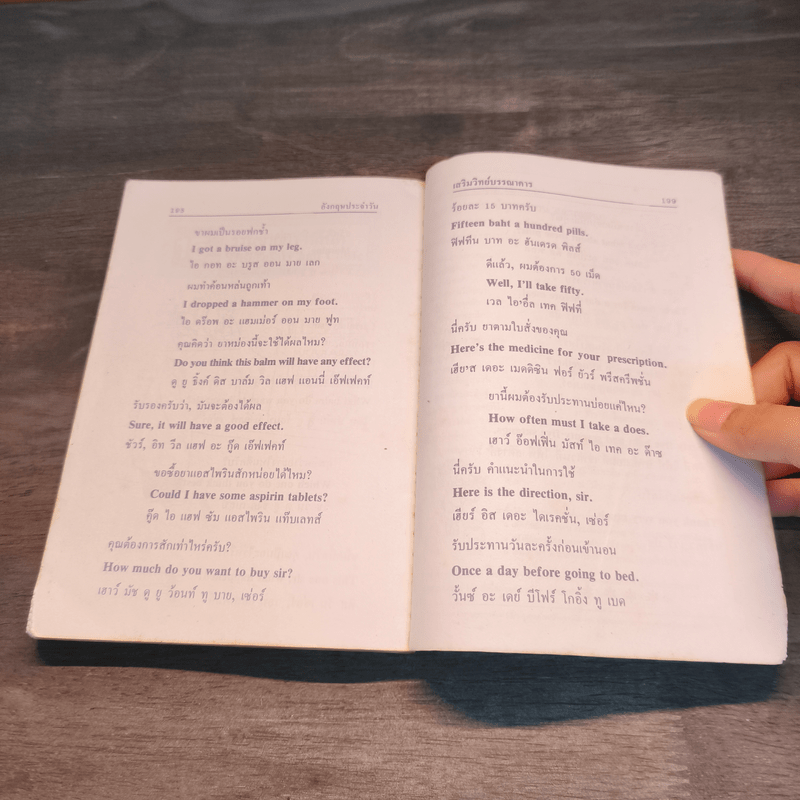 อังกฤษประจำวัน
ขาผมเป็นรอยฟกช้ำ
I got a bruise on my leg.
ไอ กอท อะ บรูส ออน มาย เลก
ผมทำค้อนหล่นถูกเท้า
I dropped a hammer on my foot.
ไอ ดร๊อพ อะ แฮมเม่อร์ ออน มาย ฟูท
คุณคิดว่า ยาหม่องนี้จะใช้ได้ผลไหม?
Do you think this balm will have any effect?
ดู ยู ธิ้งค์ ดิส บาล์ม วิล แฮฟ แอนนี่ เอ๊ฟเฟคท์
รับรองครับว่า, มันจะต้องได้ผล
Sure, it will have a good effect.
ชัวร์, อิท วีล แฮฟ อะ กู๊ด เอ๊ฟเฟคท์
ขอซื้อยาแอสไพรินสักหน่อยได้ไหม?
Could I have some aspirin tablets?
คู๊ด ไอ แฮฟ ซัม แอสไพริน แท็บเลทส์
คุณต้องการสักเท่าไหร่ครับ?
How much do you want to buy sir?
เฮาว์ มัช ดู ยู ว้อนท์ ทู บาย, เซ่อร์
เสริมวิทย์บรรณาคาร
199
ร้อยละ 15 บาทครับ
Fifteen baht a hundred pills.
ฟิฟทีน บาท อะ ฮันเดรด พิลส์
ดีแล้ว, ผมต้องการ 50 เม็ด
Well, I'll take fifty.
เวล ไอ'อื่ล เทค ฟิฟที่
นี่ครับ ยาตามใบสั่งของคุณ
Here's the medicine for your prescription.
เฮีย'ส เดอะ เมดดิซิน ฟอร์ ยัวร์ พรีสครีพชั่น
ยานี้ผมต้องรับประทานบ่อยแค่ไหน?
How often must I take a does.
เฮาว์ อ๊อฟเฟิ่น มัสท์ ไอ เทค อะ ด๊าซ
นี่ครับ คำแนะนำในการใช้
Here is the direction, sir.
เฮียร์ อิส เดอะ ไดเรคชั่น, เซ่อร์
รับประทานวันละครั้งก่อนเข้านอน
Once a day before going to bed.
วั้นซ์ อะ เดย์ บีโฟร์ โกอิ้ง ทู เบด